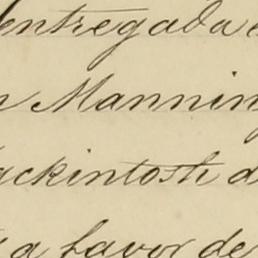 entregada
Manning
ackintosh d
a favor de